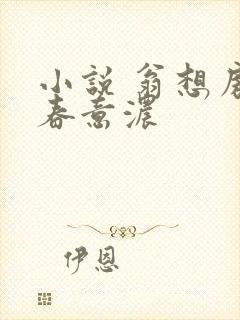 小說 翁想
春意濃
伊恩